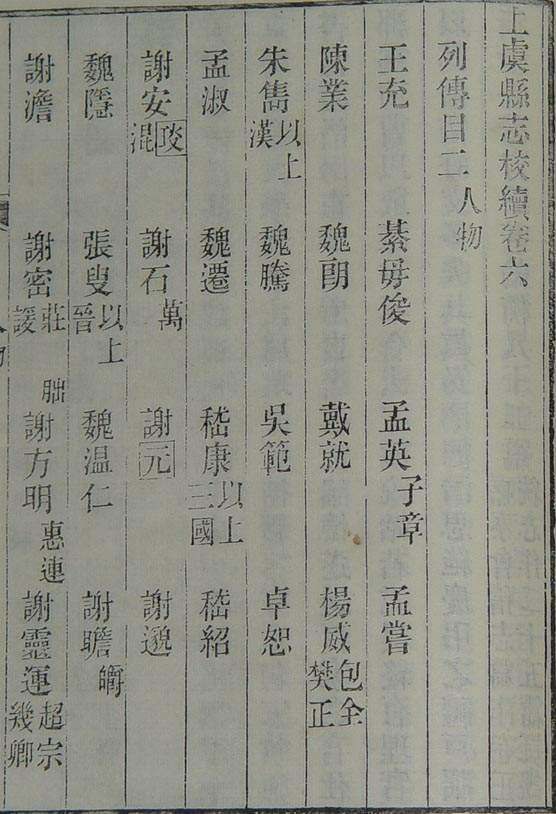 上虞縣志校續卷六
列傳目二 人物
王充 綦毋俊 孟英 子章 孟嘗
陳業 魏朗 戴就 楊威 包全 樊正
朱雋 以上漢 魏騰 吳範 卓恕
孟淑 魏遷 嵇康 以上三國 嵇紹
謝安 琰 混 謝石 萬 謝元 謝邈
魏隱 張叟 以上晉 魏温仁 謝瞻 㬭
謝澹 謝密 莊 朏 謝方明 惠連 謝靈運 超宗 幾卿